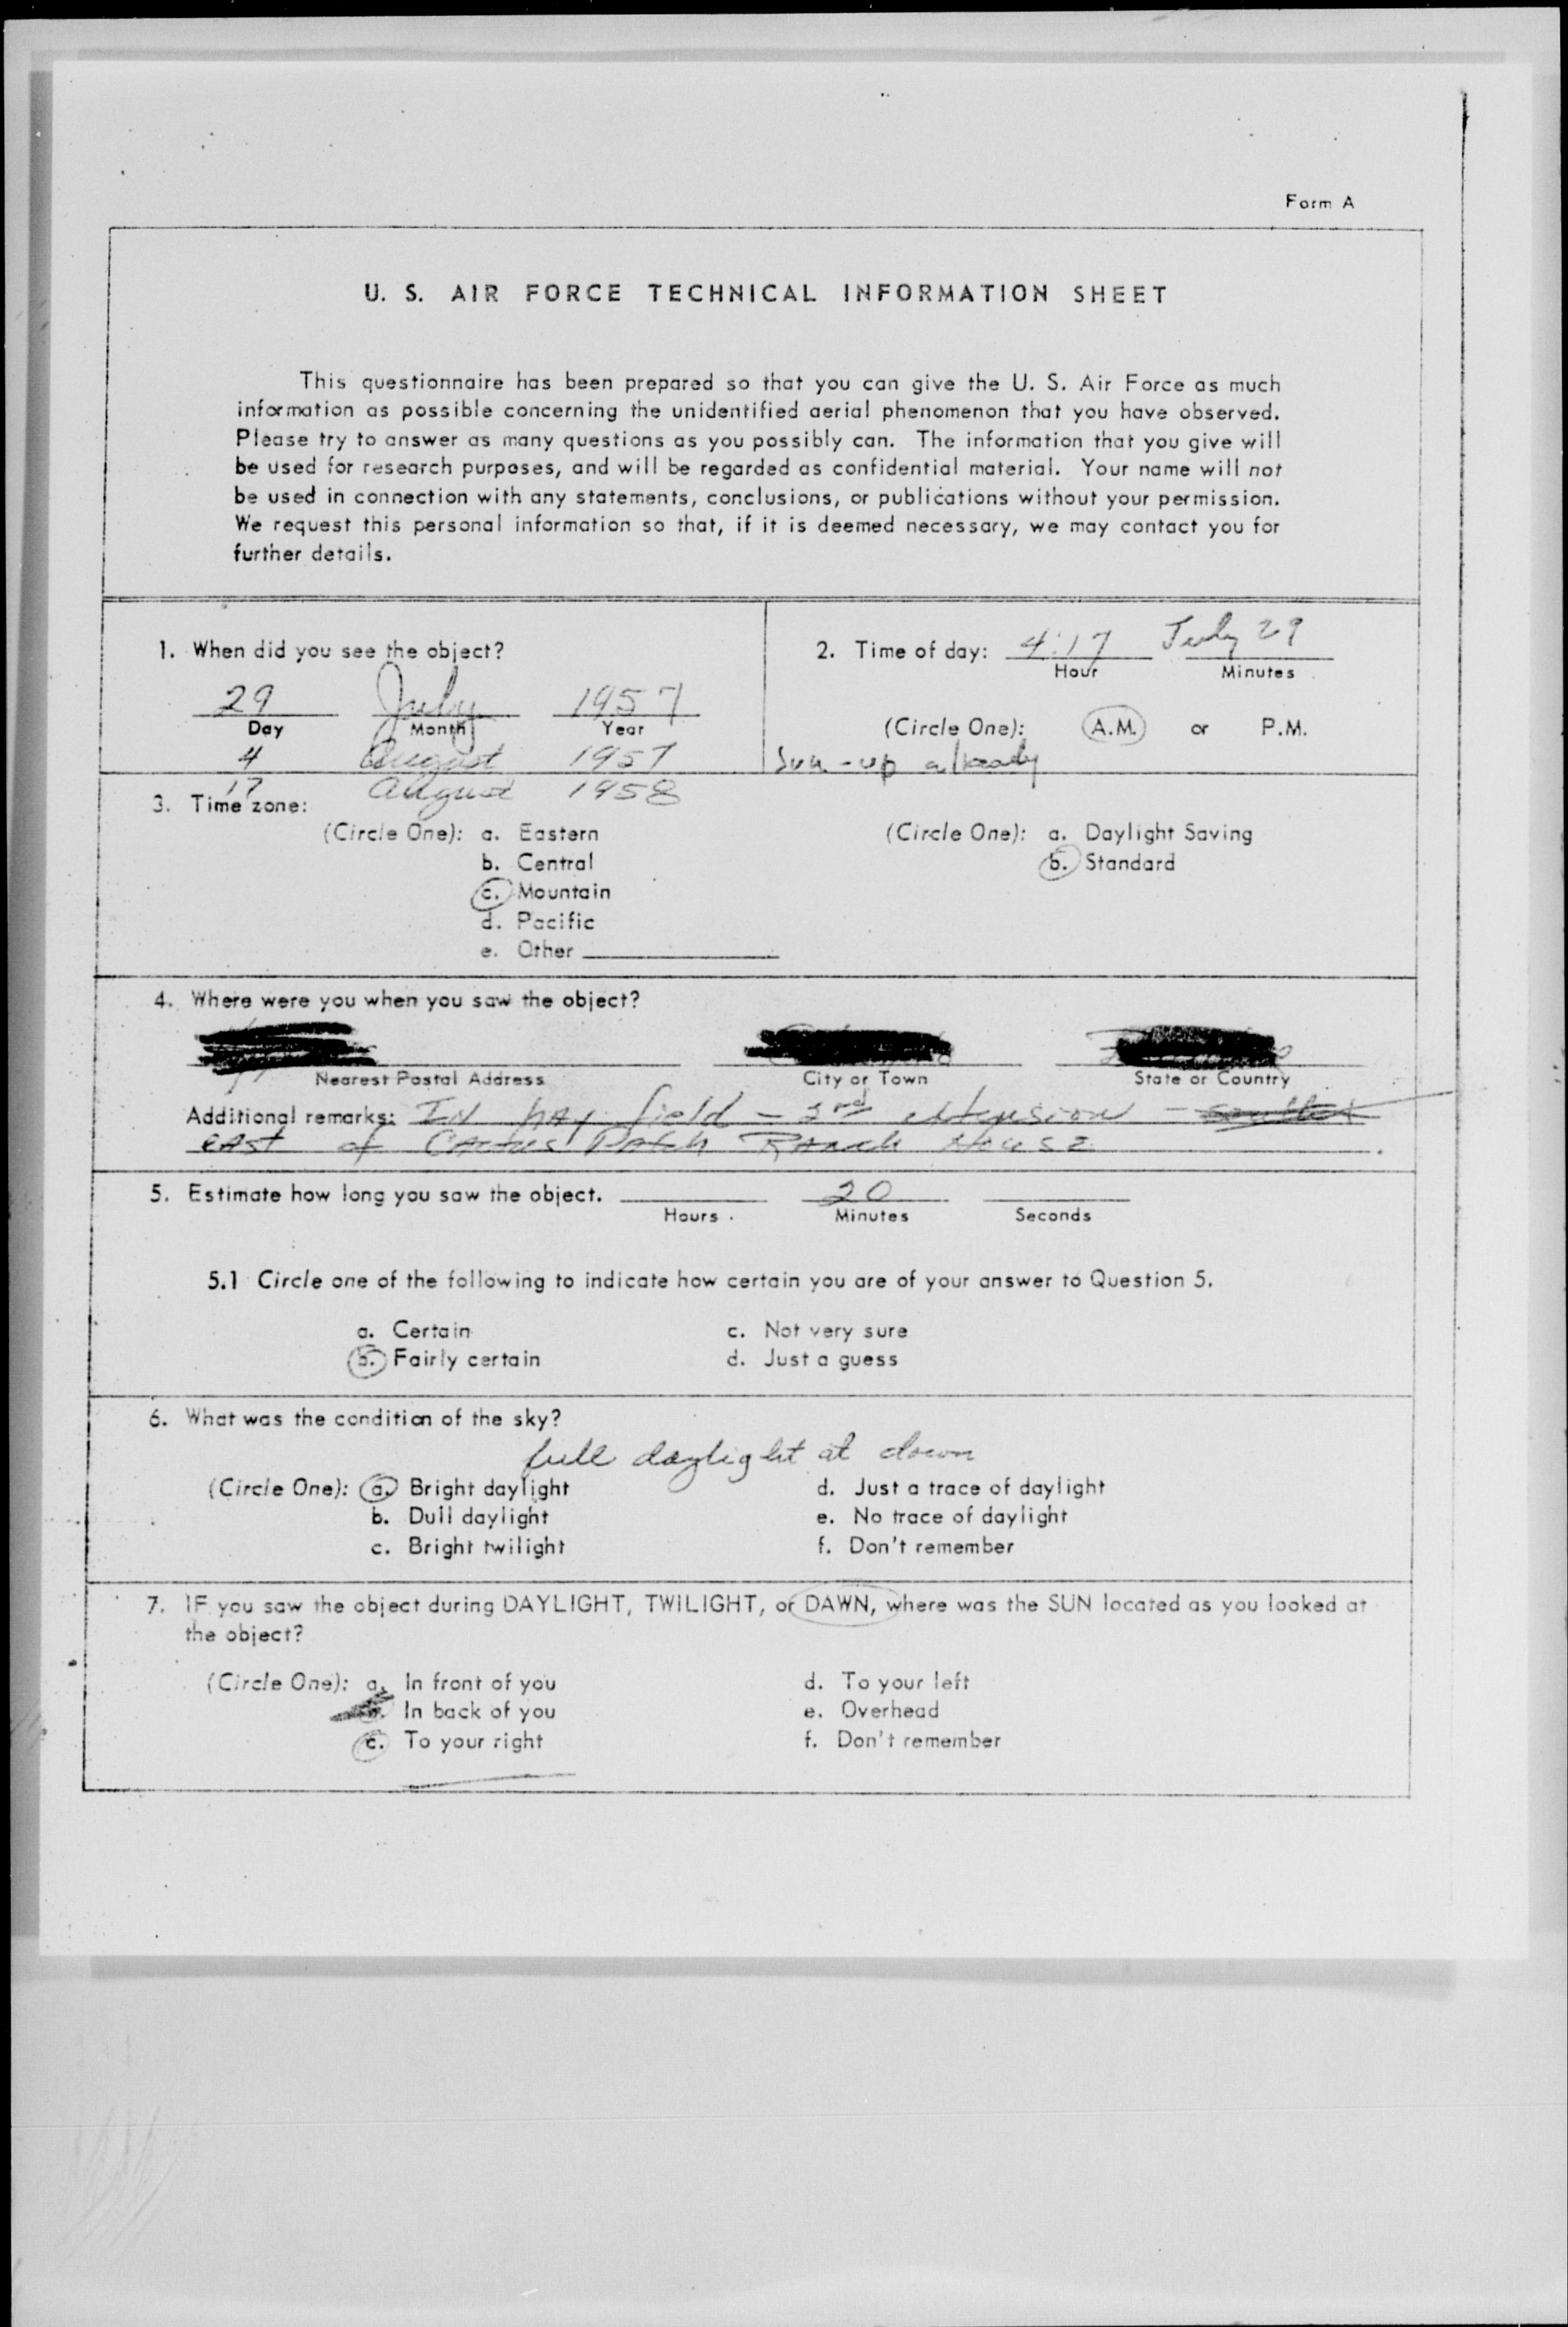 Form A
U. S. AIR FORCE TECHNICAL INFORMATION SHEET
This questionnaire has been prepared so that you can give the U. S. Air Force as much
information as possible concerning the unidentified aerial phenomenon that you have observed.
Please try to answer as many questions as you possibly can. The information that you give will
be used for research purposes, and will be regarded as confidential material. Your name will not
be used in connection with any statements, conclusions, or publications without your permission.
We request this personal information so that, if it is deemed necessary, we may contact you for
further details.
1. When did you see the object?
29 July 1957
Day Month Year
4 August 1957
17 August 1958
2. Time of day: 4:17 July 29
Hour Minutes
(Circle One): A.M. or P.M.
Sun-up already
3. Time zone:
(Circle One): a. Eastern
b. Central
c. Mountain
d. Pacific
e. Other
(Circle One): a. Daylight Saving
b. Standard
4. Where were you when you saw the object?
Nearest Postal Address City or Town State or Country
Additional remarks: IN hay field - extension -
east of Cactus Patch Ranch House.
5. Estimate how long you saw the object. 20
Hours Minutes Seconds
5.1 Circle one of the following to indicate how certain you are of your answer to Question 5.
a. Certain c. Not very sure
b. Fairly certain d. Just a guess
6. What was the condition of the sky?
full daylight at dawn
(Circle One): a. Bright daylight d. Just a trace of daylight
b. Dull daylight e. No trace of daylight
c. Bright twilight f. Don't remember
7. IF you saw the object during DAYLIGHT, TWILIGHT, or DAWN, where was the SUN located as you looked at
the object?
(Circle One): a. In front of you d. To your left
b. In back of you e. Overhead
c. To your right f. Don't remember